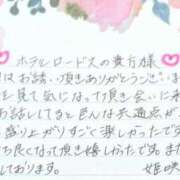 ホテルロードスの貴方様
はお話し頂きありがとうござい
を見て気になって頂き会いに来
お話してきと色んな共通点が
盛り上がりすごく楽しかったで
も良くなって頂き嬉しかったです
しております。 姫咲